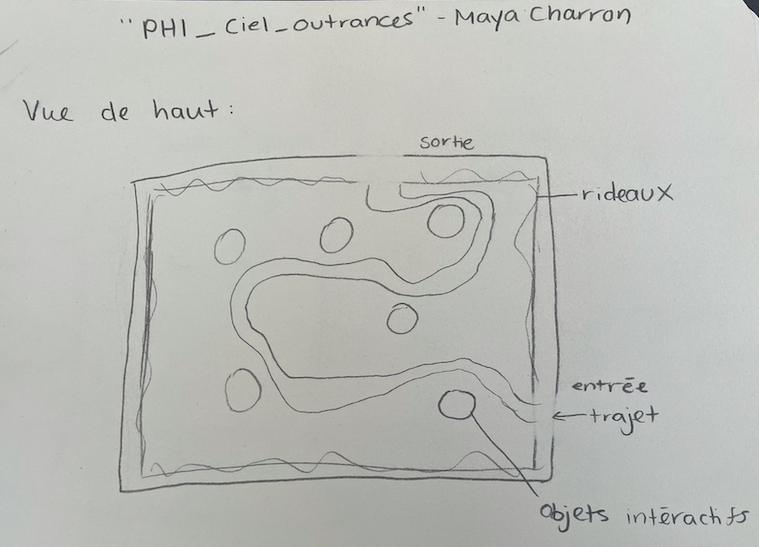 "PHI_Ciel_outrances" - Maya Charron
Vue de haut :
sortie
rideaux
entrée
trajet
objets intéractifs